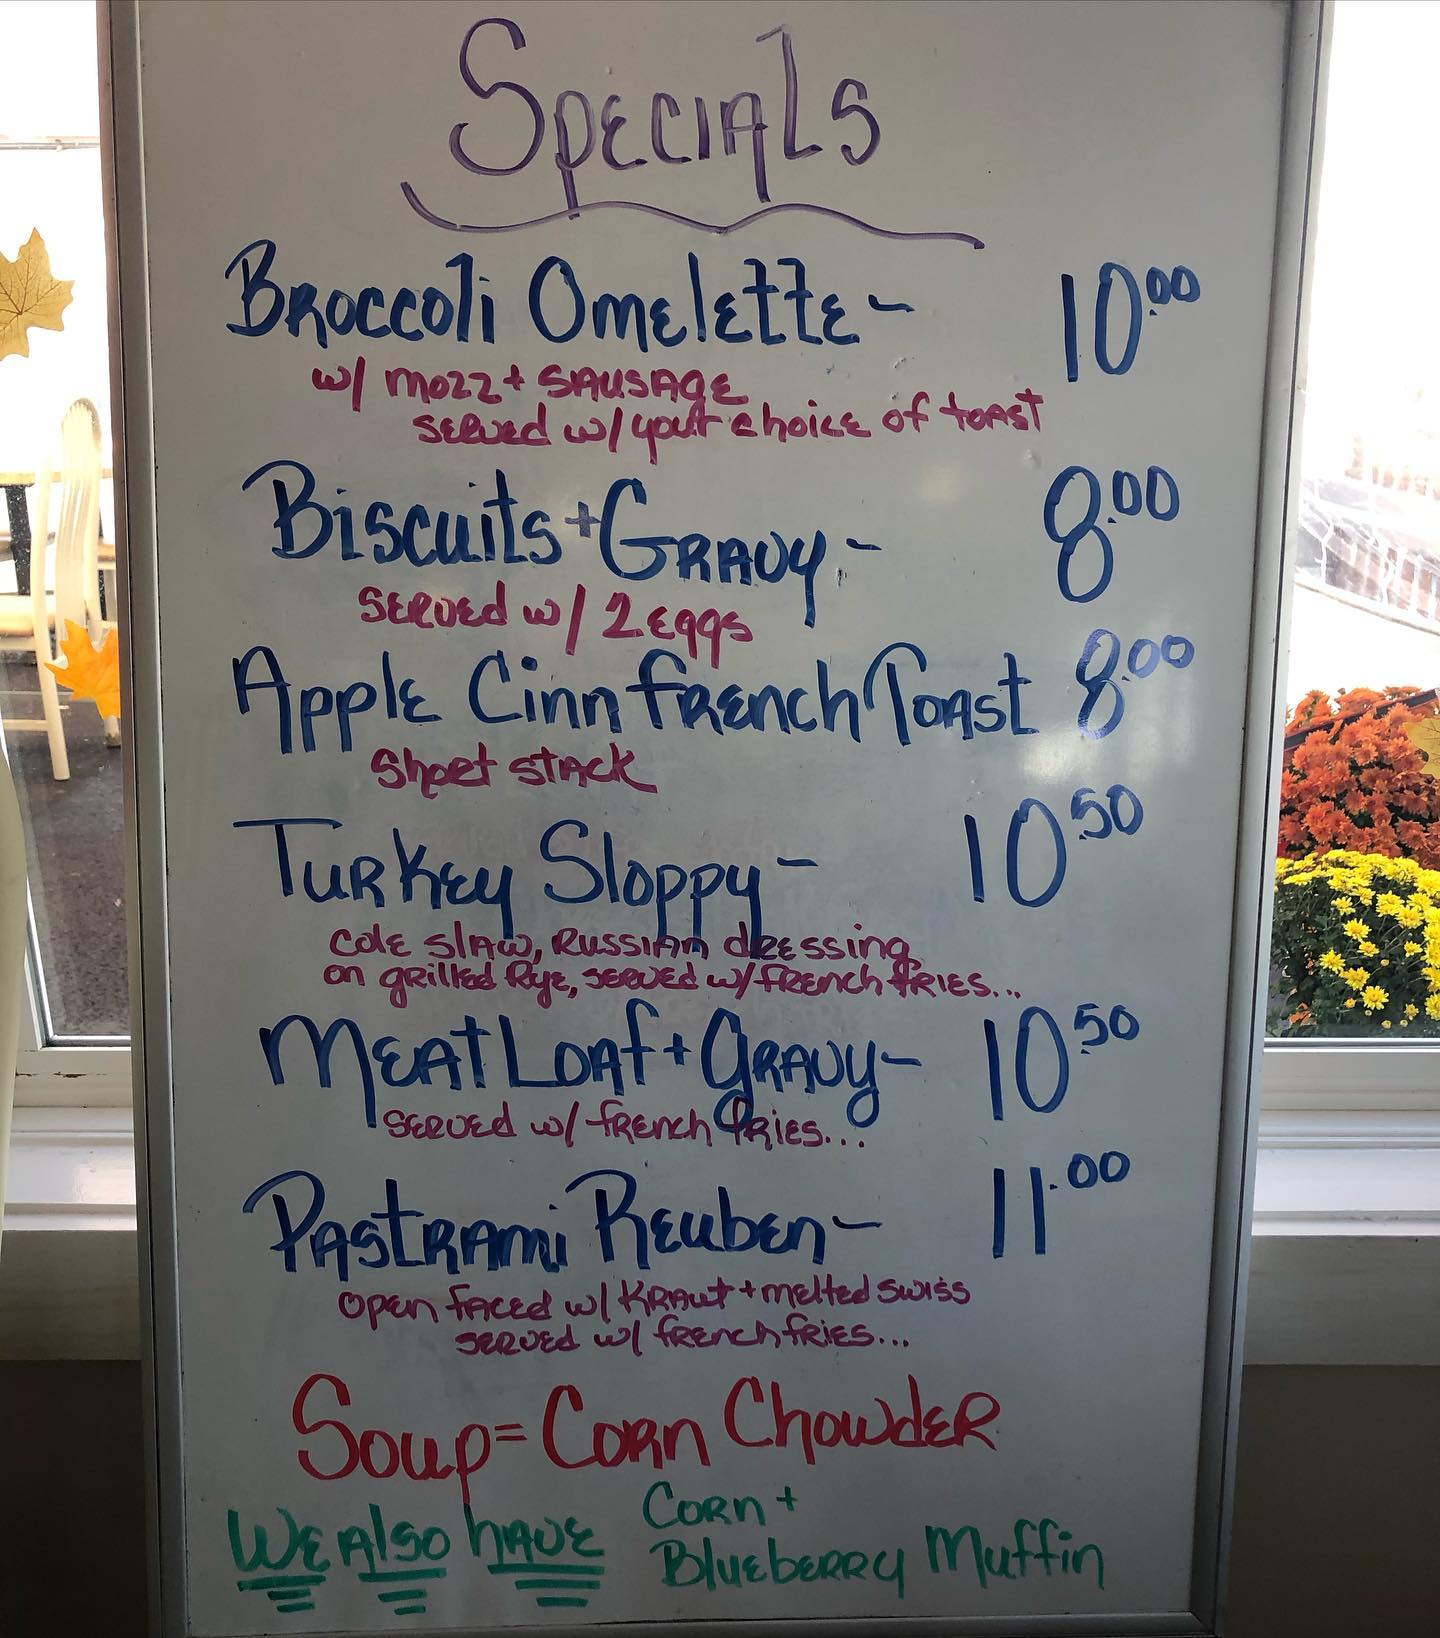 Specials
Broccoli Omelette - 10.00
w/ mozz + sausage
served w/ your choice of toast
Biscuits + Gravy - 8.00
served w/ 2 eggs
Apple Cinn French Toast 8.00
Short stack
Turkey Sloppy - 10.50
cole slaw, Russian dressing
on grilled Rye, served w/ french fries...
Meat Loaf + Gravy - 10.50
served w/ french fries...
Pastrami Reuben - 11.00
open faced w/ Kraut + melted swiss
served w/ french fries...
Soup = Corn Chowder
We also have Corn +
Blueberry Muffin